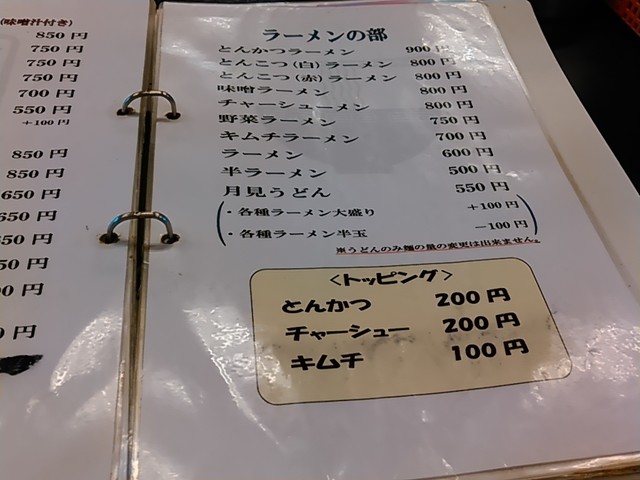 (味噌汁付き)
850 円
750 円
750 円
750 円
700 円
550 円
+100 円
850 円
850 円
650 円
650 円
650 円
50 円
0 円
円
ラーメンの部
とんかつラーメン 900 円
とんこつ(白)ラーメン 800 円
とんこつ(赤)ラーメン 800 円
味噌ラーメン 800 円
チャーシューメン 800 円
野菜ラーメン 750 円
キムチラーメン 700 円
ラーメン 600 円
半ラーメン 500 円
月見うどん 550 円
・各種ラーメン大盛り +100 円
・各種ラーメン半玉 -100 円
※うどんのみ麺の量の変更は出来ません。
<トッピング>
とんかつ 200 円
チャーシュー 200 円
キムチ 100 円